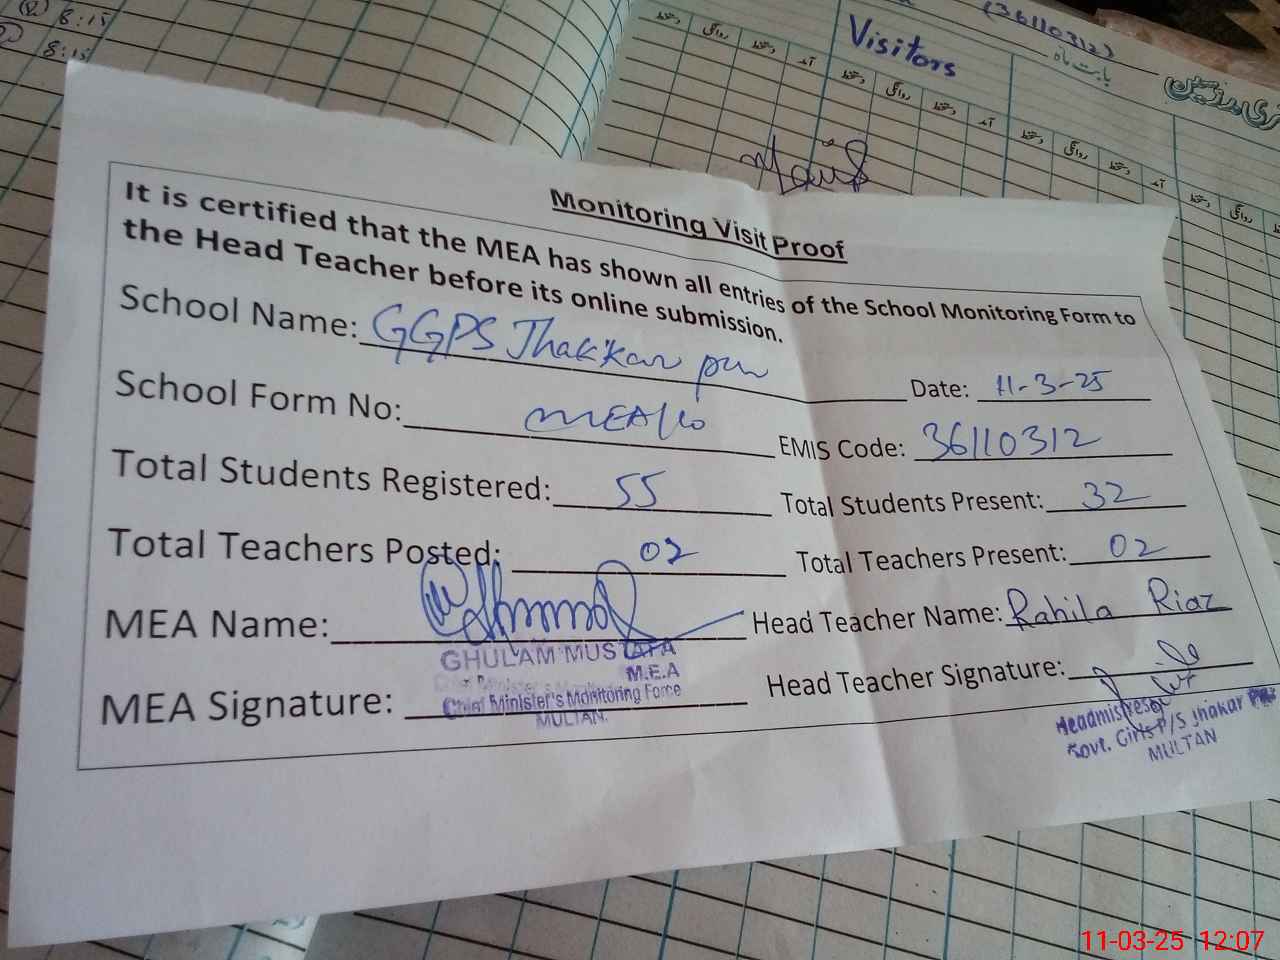 8:15
8:15
(36110312)
Visitors
بابت ماہ
دستخط روانگی دستخط آمد دستخط روانگی دستخط آمد دستخط روانگی دستخط آمد دستخط روانگی
Monitoring Visit Proof
It is certified that the MEA has shown all entries of the School Monitoring Form to
the Head Teacher before its online submission.
School Name: GGPS Jhakkar pur
Date: 11-3-25
School Form No: MEA/10
EMIS Code: 36110312
Total Students Registered: 55
Total Students Present: 32
Total Teachers Posted: 02
Total Teachers Present: 02
MEA Name:
Head Teacher Name: Rahila Riaz
GHULAM MUSTAFA
M.E.A
Chief Minister's Monitoring Force
MULTAN.
MEA Signature:
Head Teacher Signature:
Headmistress
Govt. Girls P/S Jhakar
MULTAN
11-03-25 12:07